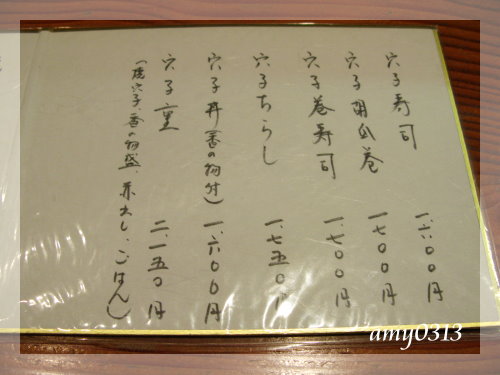 穴子寿司 一、六〇〇円
穴子胡瓜巻 一、七〇〇円
穴子巻寿司 一、七〇〇円
穴子ちらし 一、七五〇円
穴子丼（香の物付） 一、六〇〇円
穴子重 二、一五〇円
（焼穴子、香の物盛、赤出し、ごはん）
amy0313